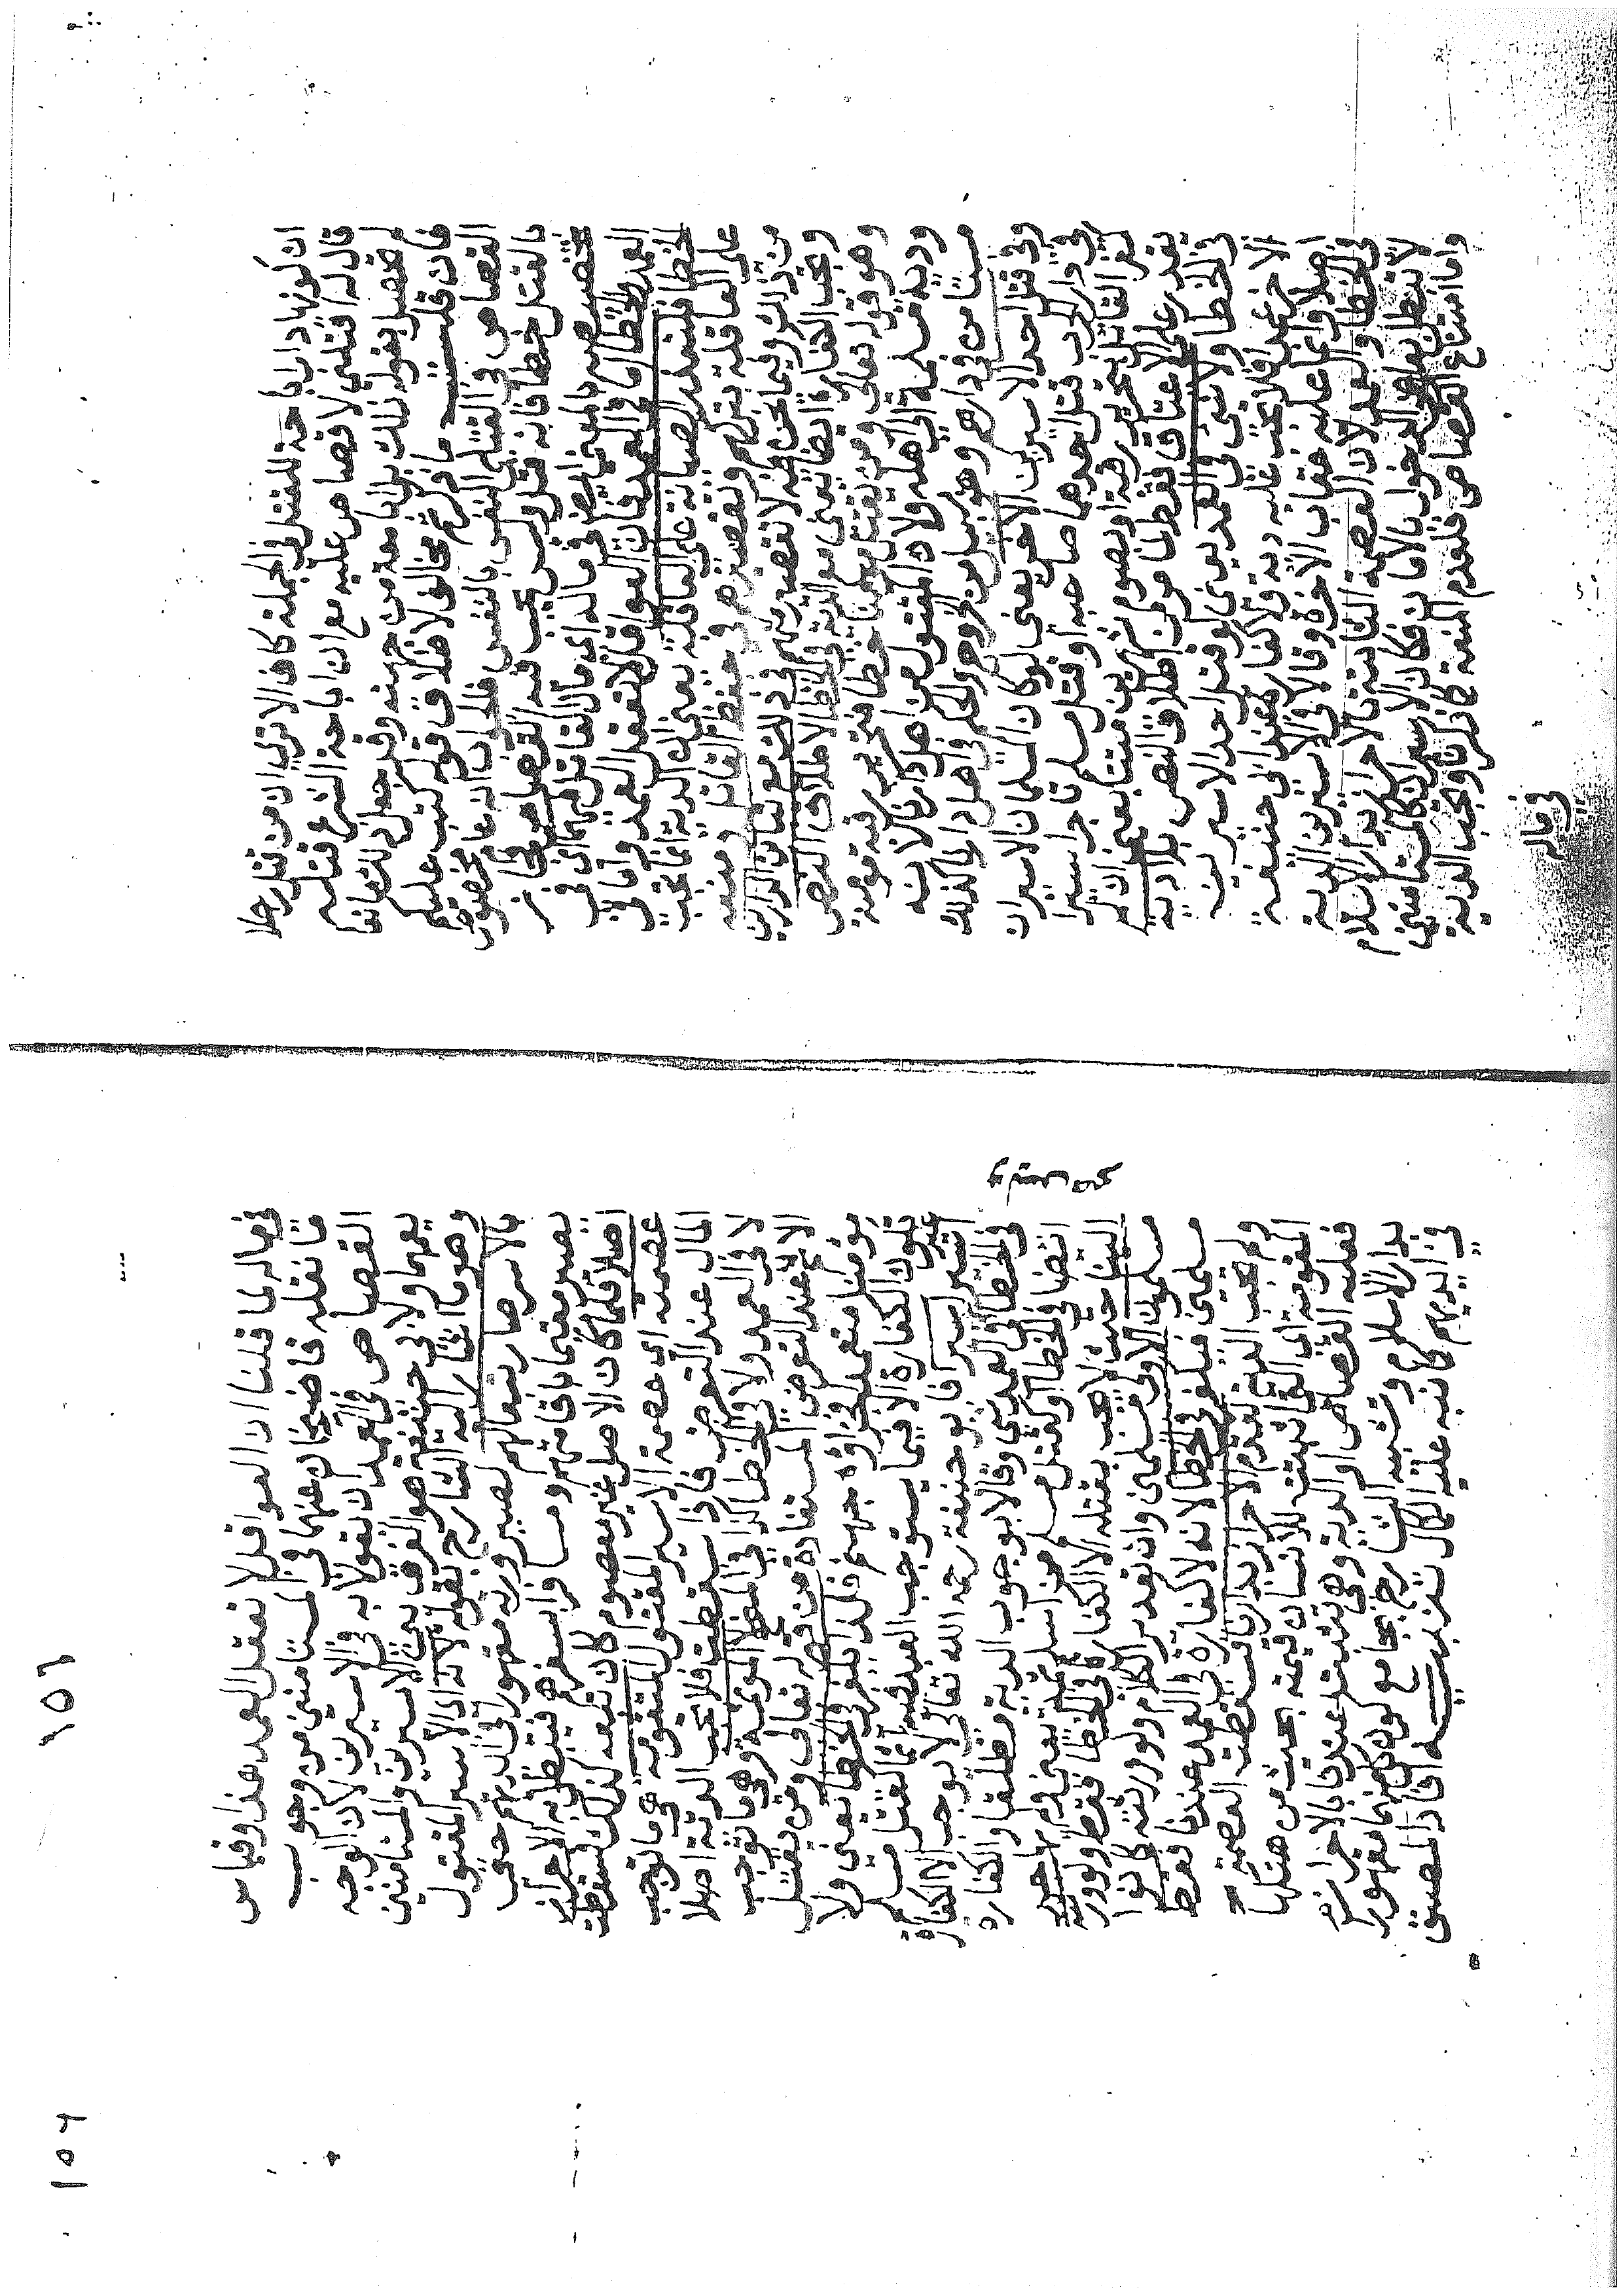 ان كونها دار اباحة للقتل في الجملة كاف الا ترى ان من قتل رجلا
قال له اقتلني لا قصاص عليه مع ان اباحة الشرع قتله
لم تحصل بقوله ذلك بل من جهته وقد جعل ذلك مانعا
فان قلت ما ذكرتم مخالف لاطلاق قوله كتب عليكم
القصاص في القتلى النفس بالنفس قلت انه عام مخصوص
بالقتل خطأ فانه قتل وليس يجب فيه القصاص فجاز
تخصيصه بالمعنى ايضا في ماله اي مال القاتل اي في
العمد والخطا اما في العمد فلان العواقل لا تعقل العمد واما في
الخطا فلتعذر الصيانة على العاقلة يعني ان الدية انما تجب
على العاقلة بتركهم وتقصيرهم في حفظ القاتل ومنعه
من ذلك وفيما نحن فيه لا تقصير منهم في ذلك مع تباين الدارين
وتجب الكفارة ايضا يعني مع الدية في الخطا لاطلاق النص
وهو قوله تعالى ومن يقتل مؤمنا خطا فتحرير رقبة مؤمنة
ودية مسلمة الى اهله ولان المقتول من اهل دارنا لانه
مستامن في دارهم وهو سبيل من الخروج والحكم في اهل دارنا كذلك
وفي قتل احد الاسيرين الاخر يعني لو كان المسلمان الاسيران
في دار الحرب قتل احدهما صاحبه او قتل مسلم تاجر اسيرا
كفر القاتل بتحرير رقبة او بصوم شهرين متتابعين ان لم
يقدر على الاعتاق فقط لما مر من اطلاق النص بلا دية
في الخطا ولا شي في العمد يعني لو قتل احد الاسيرين
الاخر عمدا فلا يجب عليه دية ولا كفارة عند ابي حنيفة
اصلا وانما عليه عقاب الاخرة وقالا في الاسيرين الدية
في الخطا والعمد لان العصمة الثابتة بالاحراز بدار الاسلام
لا تبطل بعارض الدخول بالامان فكان الاسير كالمستامنين
واما امتناع القصاص فلعدم المنعة كما ذكرنا وتجب الدية
في ماله
١٥٦
في ماله لما قلنا ان العواقل لا تعقل العمد هذا وقياس
ما نقله قاضيخان عنهما في المستامنين من وجوب
القصاص في العمد ان يقولا به في الاسيرين لان الوجه
يعمهما ولابي حنيفة هو الفرق بين الاسيرين والمستامنين
وهو ما اشار اليه الشارح بقوله لانه اي الاسير المقتول
بالاسر صار تبعا لهم لصيرورته مقهورا في ايديهم حتى
يصير مقيما باقامتهم ومسافرا بسفرهم فيبطل به الاحراز
اصلا فلما كان الاصل غير معصوم كان تبعه كذلك فسقطت
عصمته اي عصمة الاسير المقتول المقومة هي ما توجب
المال عند التعرض فاذا سقطت فلا تجب الدية اصلا
لا في العمد ولا في الخطا لا المؤثمة وهي ما توجب
الاثم عند التعرض المستفادة من قوله تعالى ومن يقتل
مؤمنا متعمدا فجزاؤه جهنم فلذا يكفر في الخطا يعني ولا
تكون الكفارة الا فيما يستوجب العبد فيه اثما كقتل مسلم
اسيرا فابو حنيفة رحمه الله تعالى لا يوجب الا الكفارة
في الخطا وقالا بوجوب الدية مطلقا والكفارة
ايضا في الخطا وكقتل مسلم من اسلم ثمة يعني في دار الحرب
الينا حيث لا يجب بقتله الا الكفارة في الخطا فقط ولو ورثته
مسلمون الاولى مسلمين وان تقدير الكلام ولو ورثته كانوا
مسلمين فيكفر في الخطا لانه لا كفارة في العمد عندنا فقط
ولم تجب الدية لعدم الاحراز بدارنا فسقطت العصمة
المقومة اي التي تثبت للانسان قيمة بحيث من هتكها
فعليه القصاص او الدية وهي تثبت عندنا بالاحراز
بدار الاسلام وتشبيه الشارح بجامع كون كل منهما مقهورا
في ايديهم كما نبه عليه الكمال تنبيه افاد المصنف